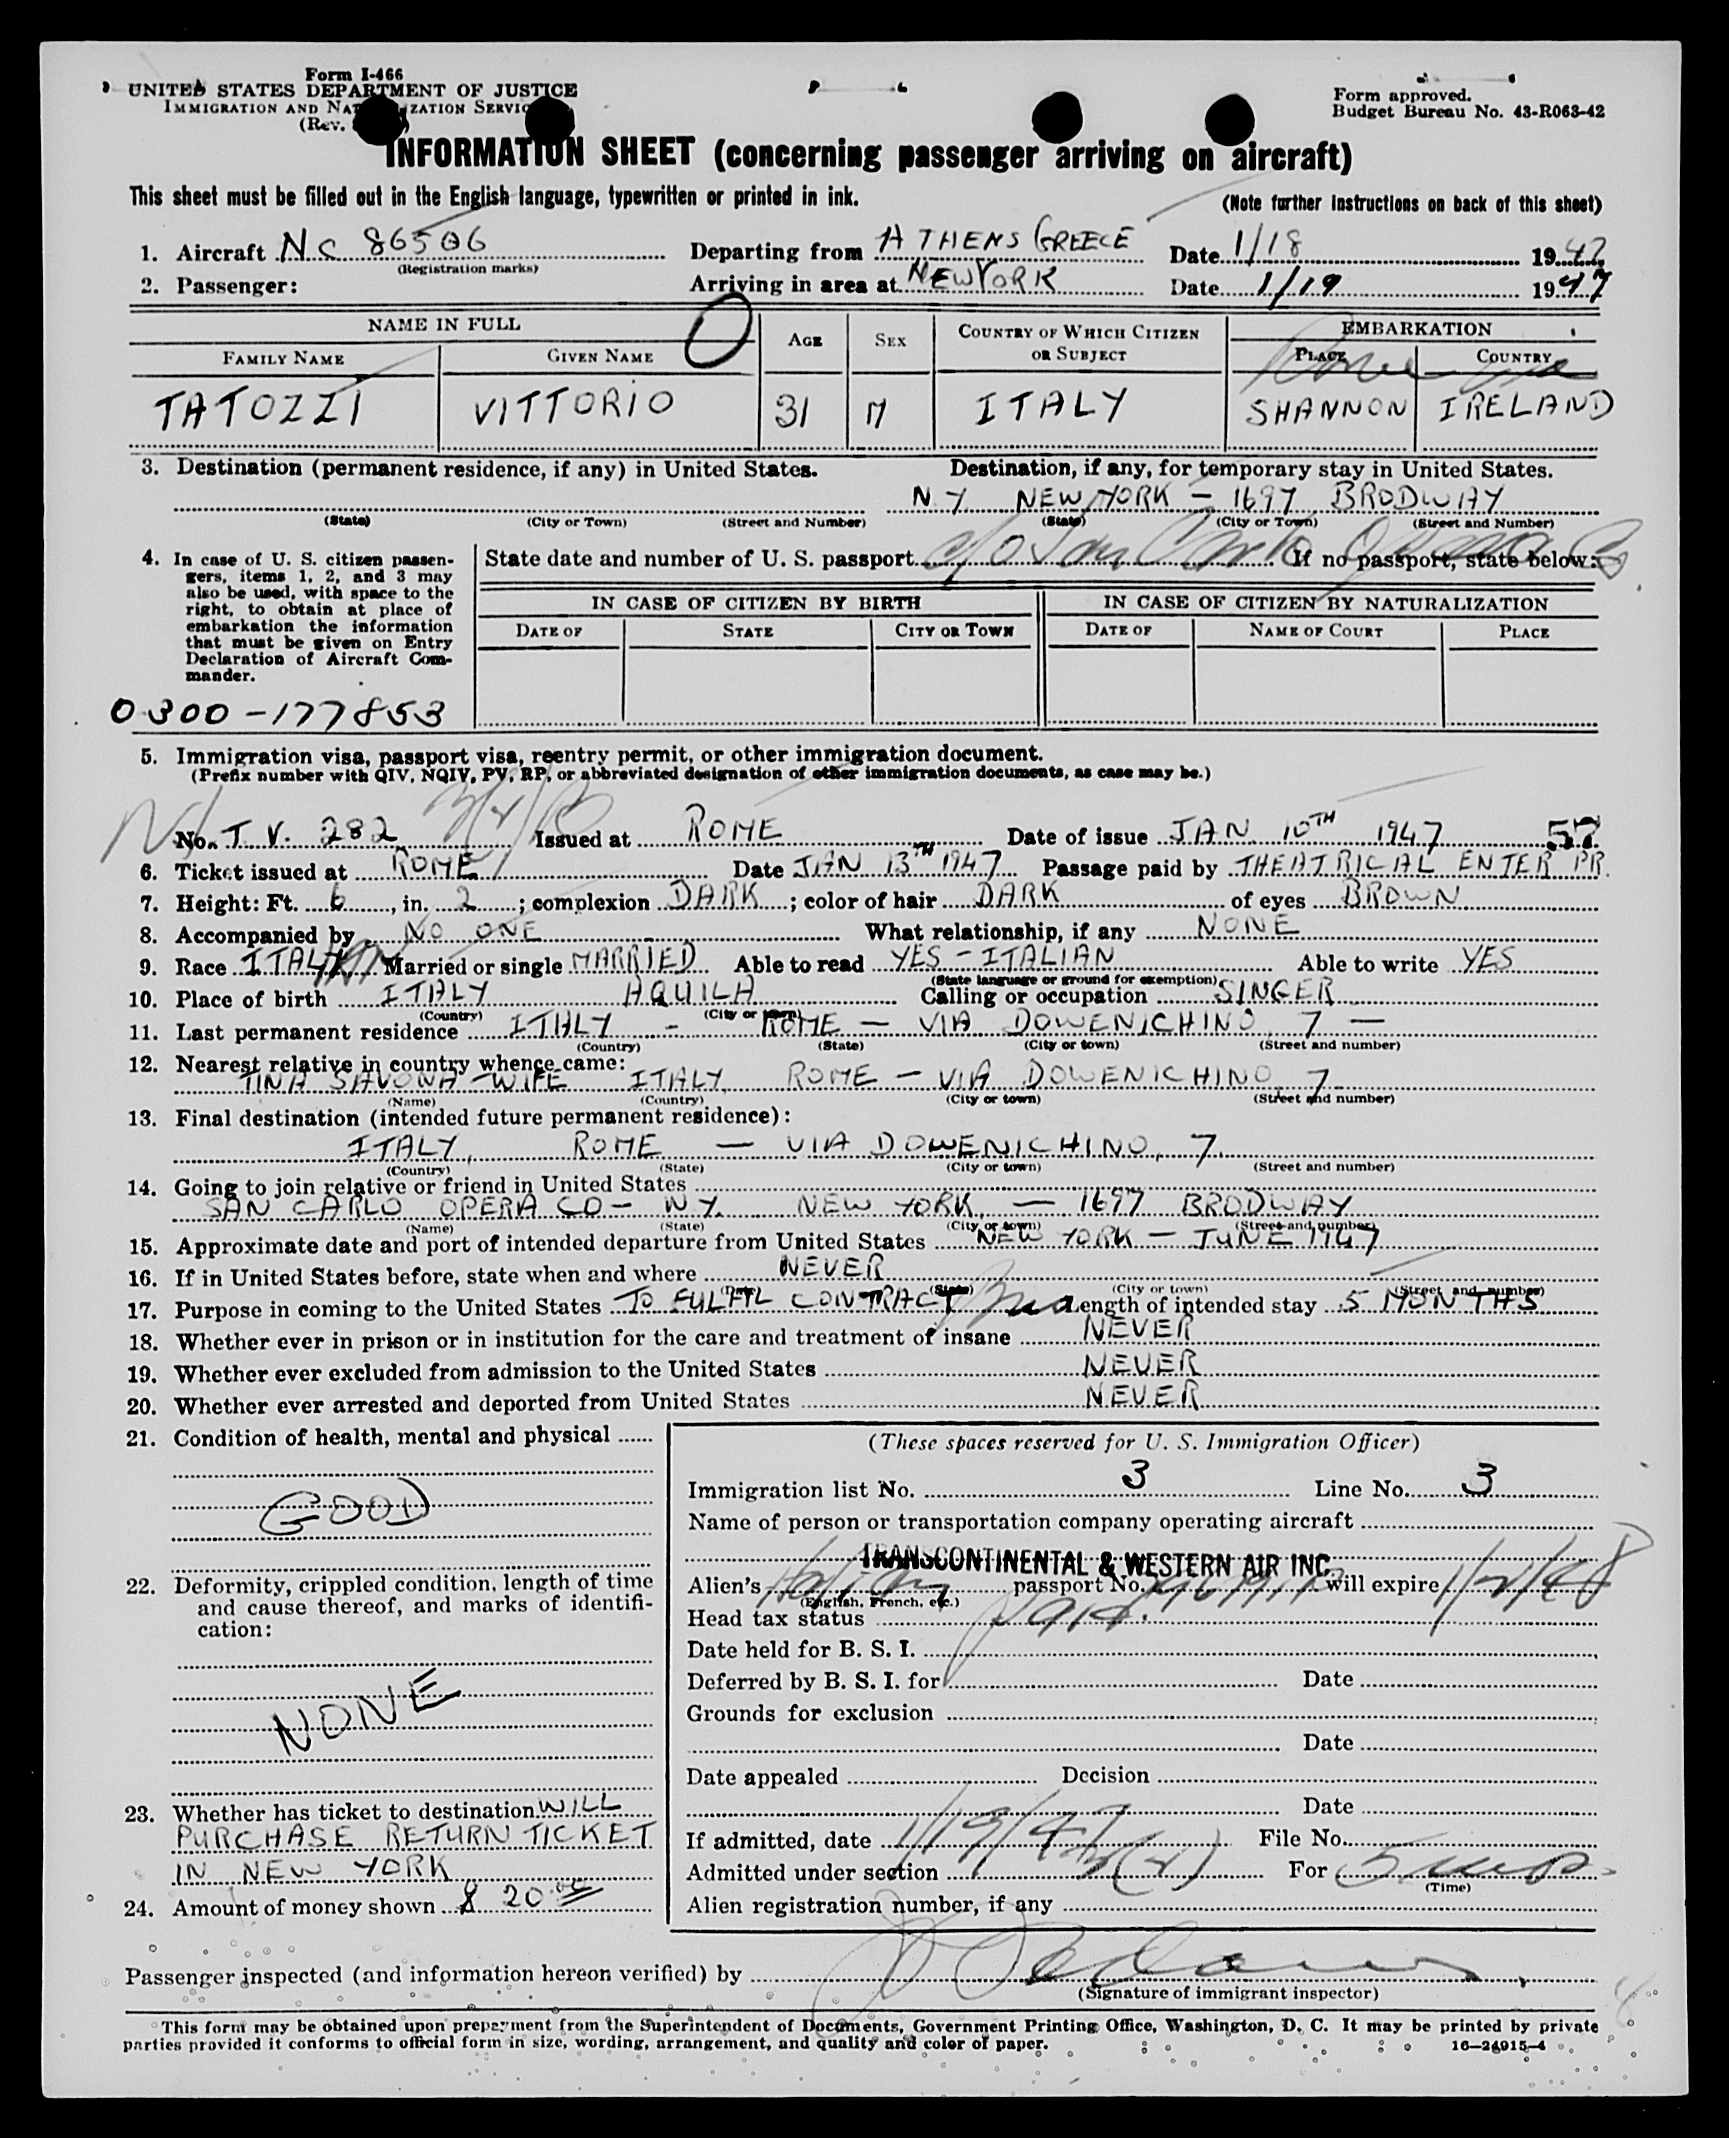 Form I-466
UNITED STATES DEPARTMENT OF JUSTICE
IMMIGRATION AND NATURALIZATION SERVICE
(Rev.
Form approved.
Budget Bureau No. 43-R063-42
INFORMATION SHEET (concerning passenger arriving on aircraft)
This sheet must be filled out in the English language, typewritten or printed in ink.
(Note further instructions on back of this sheet)
1. Aircraft NC 86506 Departing from ATHENS GREECE Date 1/18 1947
(Registration marks)
2. Passenger: Arriving in area at NEW YORK Date 1/19 1947
NAME IN FULL O AGE SEX COUNTRY OF WHICH CITIZEN OR SUBJECT EMBARKATION
FAMILY NAME GIVEN NAME PLACE COUNTRY
TATOZZI VITTORIO 31 M ITALY SHANNON IRELAND
3. Destination (permanent residence, if any) in United States. Destination, if any, for temporary stay in United States.
N.Y. NEW YORK - 1697 BRODWAY
(State) (City or Town) (Street and Number) (State) (City or Town) (Street and Number)
4. In case of U. S. citizen passengers, items 1, 2, and 3 may also be used, with space to the right, to obtain at place of embarkation the information that must be given on Entry Declaration of Aircraft Commander.
State date and number of U. S. passport c/o San Carlo Opera Co If no passport, state below:
IN CASE OF CITIZEN BY BIRTH IN CASE OF CITIZEN BY NATURALIZATION
DATE OF STATE CITY OR TOWN DATE OF NAME OF COURT PLACE
0300-177853
5. Immigration visa, passport visa, reentry permit, or other immigration document.
(Prefix number with QIV, NQIV, PV, RP, or abbreviated designation of other immigration documents, as case may be.)
No. T.V. 282 Issued at ROME Date of issue JAN 10TH 1947 57
6. Ticket issued at ROME Date JAN 13TH 1947 Passage paid by THEATRICAL ENTERPR.
7. Height: Ft. 6, in. 2; complexion DARK; color of hair DARK of eyes BROWN
8. Accompanied by NO ONE What relationship, if any NONE
9. Race ITALIAN Married or single MARRIED Able to read YES - ITALIAN Able to write YES
(State language or ground for exemption)
10. Place of birth ITALY AQUILA Calling or occupation SINGER
(Country) (City or town)
11. Last permanent residence ITALY - ROME - VIA DOWENICHINO, 7 -
(Country) (State) (City or town) (Street and number)
12. Nearest relative in country whence came:
TINA SAVONA - WIFE ITALY, ROME - VIA DOWENICHINO, 7
(Name) (Country) (City or town) (Street and number)
13. Final destination (intended future permanent residence):
ITALY, ROME - VIA DOWENICHINO, 7
(Country) (State) (City or town) (Street and number)
14. Going to join relative or friend in United States
SAN CARLO OPERA CO - N.Y. NEW YORK, - 1697 BRODWAY
(Name) (State) (City or town) (Street and number)
15. Approximate date and port of intended departure from United States NEW YORK - JUNE 1947
16. If in United States before, state when and where NEVER
(Date) (State) (City or town) (Street and number)
17. Purpose in coming to the United States TO FULFIL CONTRACT Length of intended stay 5 MONTHS
18. Whether ever in prison or in institution for the care and treatment of insane NEVER
19. Whether ever excluded from admission to the United States NEVER
20. Whether ever arrested and deported from United States NEVER
21. Condition of health, mental and physical
GOOD
22. Deformity, crippled condition, length of time and cause thereof, and marks of identification:
NONE
23. Whether has ticket to destination WILL
PURCHASE RETURN TICKET
IN NEW YORK
24. Amount of money shown $ 20.00
(These spaces reserved for U. S. Immigration Officer)
Immigration list No. 3 Line No. 3
Name of person or transportation company operating aircraft
TRANSCONTINENTAL & WESTERN AIR INC.
Alien's Italian passport No. will expire 1/2/48
(English, French, etc.)
Head tax status paid.
Date held for B. S. I.
Deferred by B. S. I. for Date
Grounds for exclusion
Date
Date appealed Decision
Date
If admitted, date 1/19/47 File No.
Admitted under section 3(2) For 5 mos
(Time)
Alien registration number, if any
Passenger inspected (and information hereon verified) by
(Signature of immigrant inspector)
This form may be obtained upon prepayment from the Superintendent of Documents, Government Printing Office, Washington, D. C. It may be printed by private
parties provided it conforms to official form in size, wording, arrangement, and quality and color of paper. 16-24915-4